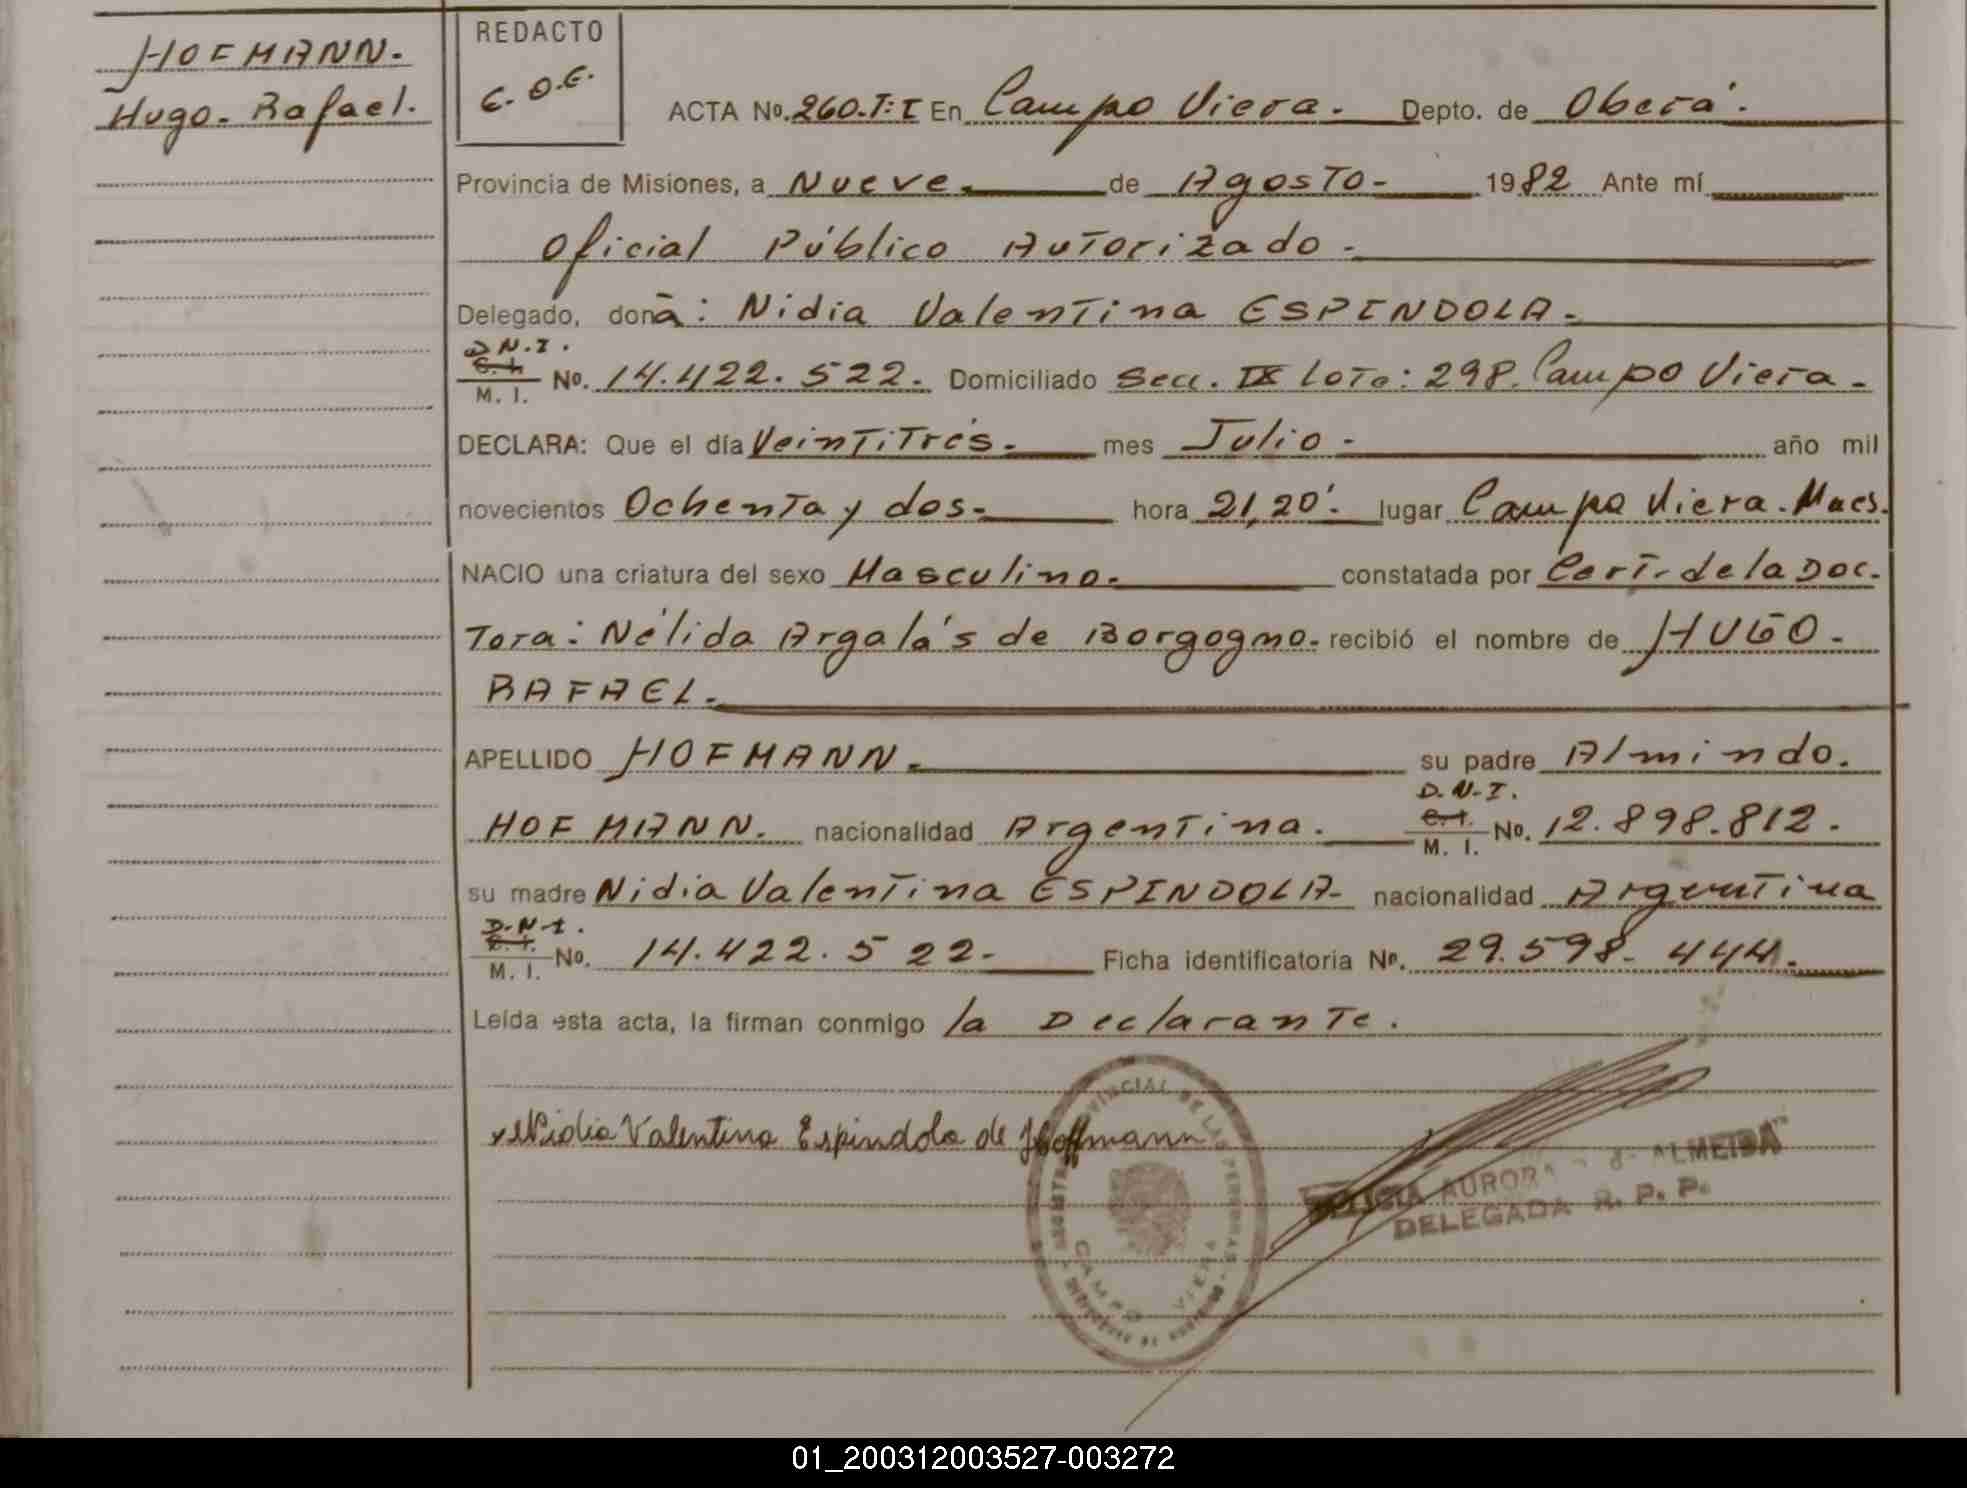 HOFMANN.
Hugo. Rafael.
REDACTO
C. O. E.
ACTA No. 260.T:I En Campo Viera. Depto. de Oberá.
Provincia de Misiones, a Nueve. de Agosto- 1982 Ante mí
Oficial Público Autorizado.
Delegado, donã: Nidia Valentina ESPINDOLA.
D.N.I.
C. I.
M. I. No. 14.422.522. Domiciliado Secc. IX Lote: 298. Campo Viera.
DECLARA: Que el día Veintitrés. mes Julio - año mil
novecientos Ochenta y dos. hora 21,20'. lugar Campo Viera. Mnes.
NACIO una criatura del sexo Masculino. constatada por Cert. de la Doc.
Tora: Nélida Argalá's de Borgogno. recibió el nombre de HUGO.
RAFAEL.
APELLIDO HOFMANN. su padre Almindo.
D.N.I.
HOFMANN. nacionalidad Argentina. C. I. M. I. No. 12.898.812.
su madre Nidia Valentina ESPINDOLA- nacionalidad Argentina
D.N.I.
C. I.
M. I. No. 14.422.522- Ficha identificatoria No. 29.598.444.
Leída esta acta, la firman conmigo la Declarante.
x Nidia Valentina Espindola de Hoffmann
PROVINCIAL DE LAS PERSONAS
CAMPO VIERA
AURORA ALMEIDA
DELEGADA R. P. P.
01_200312003527-003272